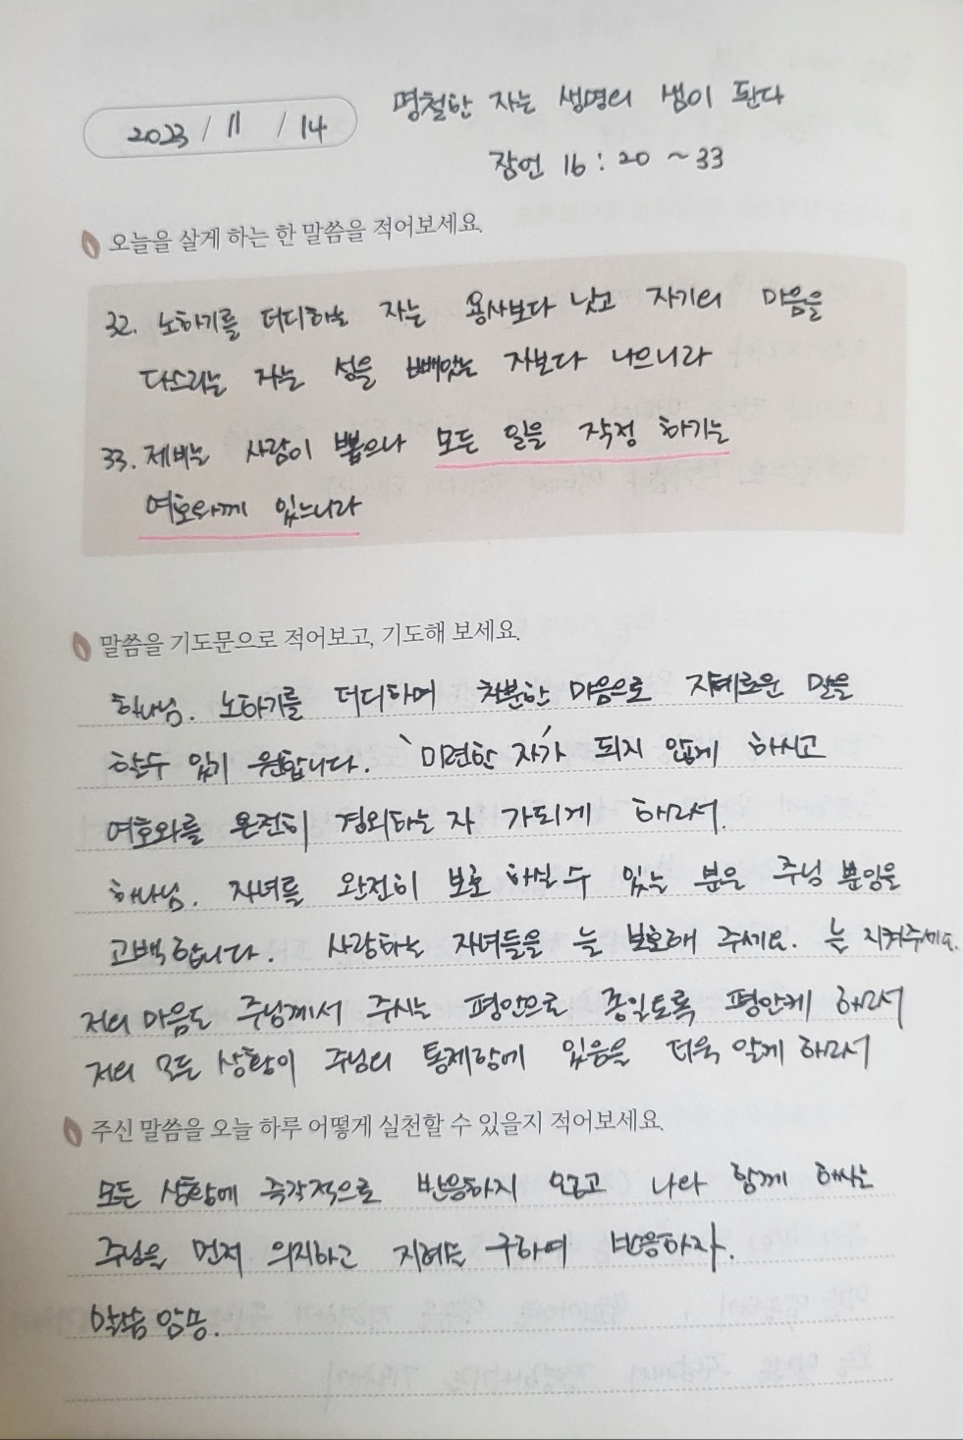 2023 / 11 / 14
명철한 자는 생명의 샘이 된다
잠언 16 : 20 ~ 33
오늘을 살게 하는 한 말씀을 적어보세요.
32. 노하기를 더디하는 자는 용사보다 낫고 자기의 마음을
다스리는 자는 성을 빼앗는 자보다 나으니라
33. 제비는 사람이 뽑으나 모든 일을 작정 하기는
여호와께 있느니라
말씀을 기도문으로 적어보고, 기도해 보세요.
하나님. 노하기를 더디하며 차분한 마음으로 지혜로운 말을
할수 있기 원합니다. '미련한 자'가 되지 않게 하시고
여호와를 온전히 경외하는 자 가되게 하소서.
하나님. 자녀를 완전히 보호 하실 수 있는 분은 주님 뿐임을
고백합니다. 사랑하는 자녀들을 늘 보호해 주세요. 늘 지켜주세요.
저의 마음도 주님께서 주시는 평안으로 종일토록 평안케 하소서
저의 모든 상황이 주님의 통제랑에 있음을 더욱 알게 하소서
주신 말씀을 오늘 하루 어떻게 실천할 수 있을지 적어보세요.
모든 상황에 즉각적으로 반응하지 않고 나와 함께 하시는
주님을 먼저 의지하고 지혜를 구하며 반응하자.
말씀 암송.